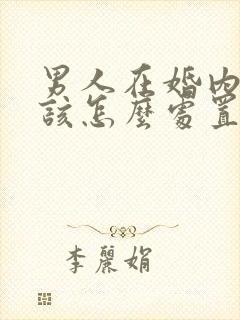 男人在婚内
該怎麽處置
李麗娟